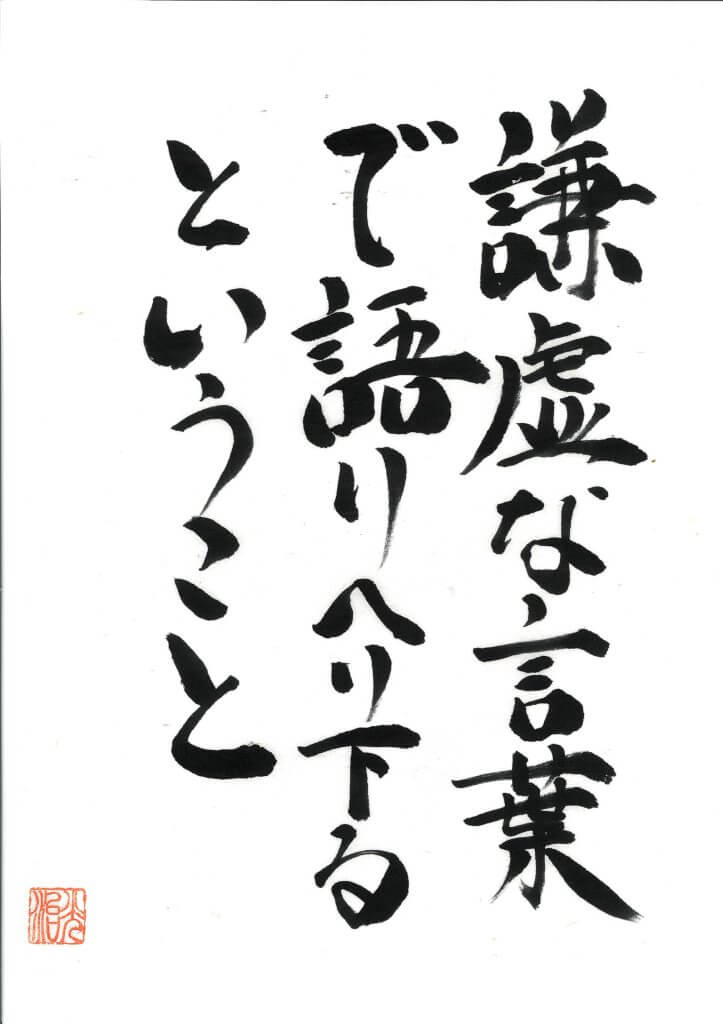 謙虚な言葉
で語りへり下る
ということ